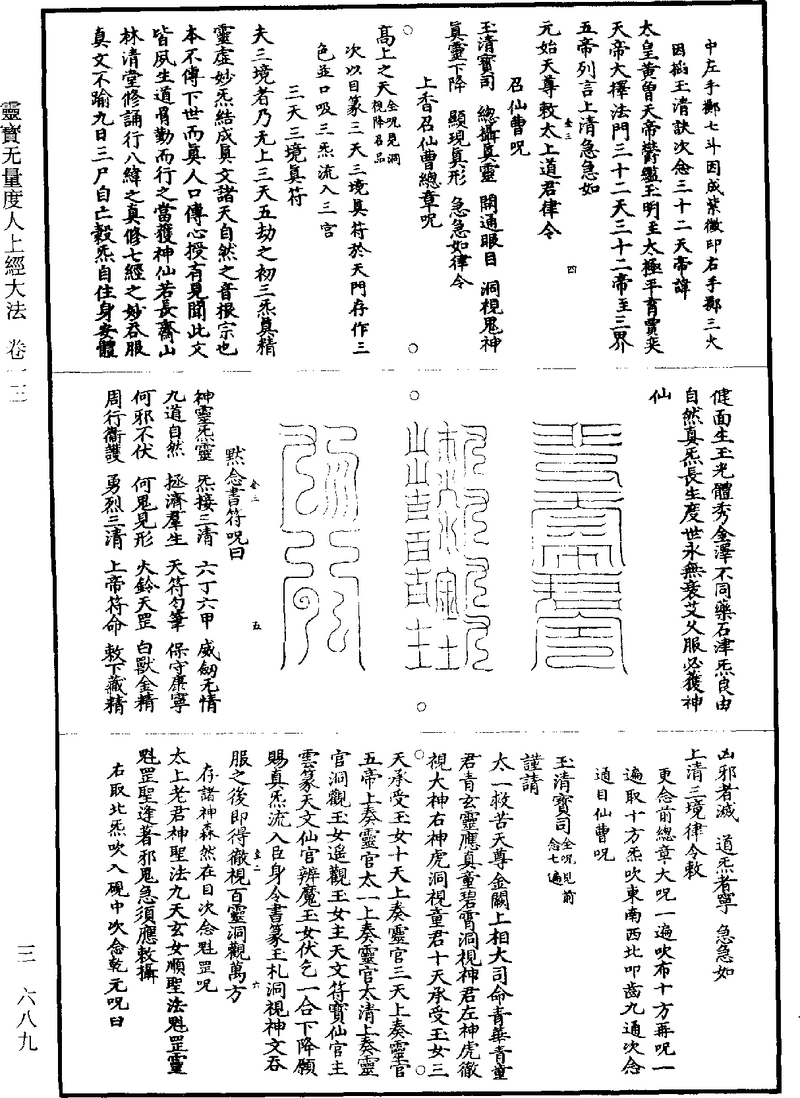 中左手擲七斗因成紫微印右手擲三火
因掐玉清訣次念三十二天帝諱
太皇黃曾天帝鬱䍤玉明至太極平育賈奕
天帝大擇法門三十二天三十二帝至三界
五帝列言上清急急如
元始天尊敕太上道君律令
召仙曹呪
玉清寶司 總攝真靈 開通眼目 洞視鬼神
真靈下降 顯現真形 急急如律令
上香召仙曹總章呪
高上之天 全呪見洞視降召品
次以目篆三天三境真符於天門存作三
色並口吸三炁流入三宮
三天三境真符
夫三境者乃无上三天五劫之初三炁真精
靈虛妙炁結成真文諸天自然之音根宗也
本不傳下世而真人口傳心授有見聞此文
皆夙生道骨勤而行之當獲神仙若長齋山
林清堂修誦行八緯之真修七經之妙吞服
真文不踰九日三尸自亡穀炁自住身安體
健面生玉光體秀金澤不同藥石津炁良由
自然真炁長生度世永無衰艾久服必獲神
仙
默念書符呪曰
神靈炁靈 炁接三清 六丁六甲 威劒无情
九道自然 拯濟羣生 天符勺筆 保守康寧
何邪不伏 何鬼見形 火鈴天罡 白獸金精
周行衞護 勇烈三清 上帝符命 敕下藏精
凶邪者滅 道炁者寧 急急如
上清三境律令敕
更念前總章大呪一遍吹布十方再呪一
遍取十方炁吹東南西北叩齒九通次念
通目仙曹呪
玉清寶司 全呪見前念七遍
謹請
太一救苦天尊金闕上相大司命青華青童
君青玄靈應真童碧霄洞視神君左神虎徹
視大神右神虎洞視童君十天承受玉女三
天承受玉女十天上奏靈官三天上奏靈官
五帝上奏靈官太一上奏靈官太清上奏靈
官洞觀玉女遥觀玉女主天文符寶仙官主
雲篆天文仙官辨魔玉女伏乞一合下降願
賜真炁流入臣身令書篆玉札洞視神文吞
服之後即得徹視百靈洞觀萬方
存諸神森然在目次念魁罡呪
太上老君神聖法九天玄女順聖法魁罡靈
魁罡聖逢著邪鬼急須應敕攝
右取北炁吹入硯中次念乾元呪曰
靈寶无量度人上經大法 卷一三
三 六八九